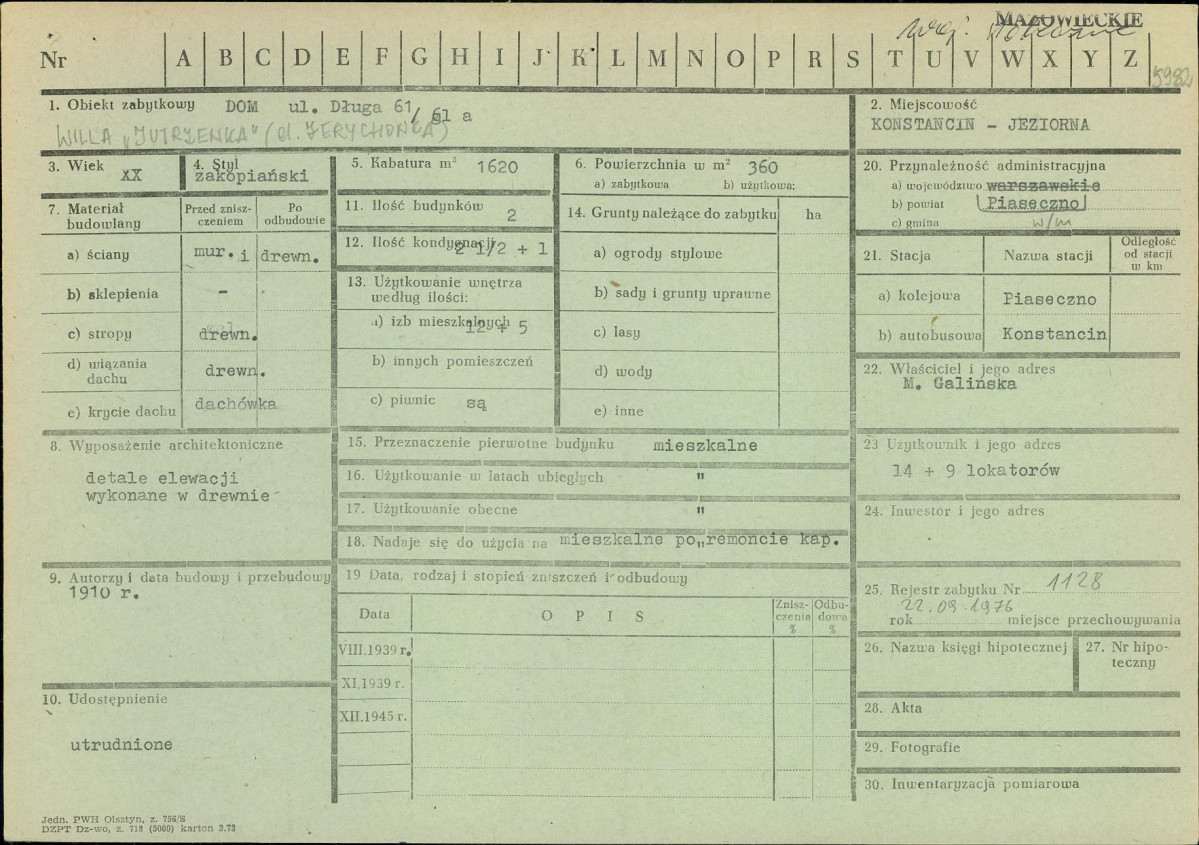 MAZOWIECKIE
woj. stołeczne
Nr A B C D E F G H I J K L M N O P R S T U V W X Y Z
5982
1. Obiekt zabytkowy DOM ul. Długa 61/ 61 a
WILLA "JUTRZENKA" (
2. Miejscowość
KONSTANCIN - JEZIORNA
3. Wiek XX
4. Styl
zakopiański
5. Kabatura m³ 1620
6. Powierzchnia w m² 360
a) zabytkowa b) użytkowa:
20. Przynależność administracyjna
a) województwo warszawskie
b) powiat Piaseczno
c) gmina w/m
7. Materiał budowlany
Przed zniszczeniem
Po odbudowie
a) ściany mur. i drewn.
b) sklepienia -
c) stropy drewn.
d) wiązania dachu drewn.
e) krycie dachu dachówka
11. Ilość budynków 2
12. Ilość kondygnacji 2 1/2 + 1
13. Użytkowanie wnętrza
według ilości:
a) izb mieszkalnych 12 + 5
b) innych pomieszczeń
c) piwnic są
14. Grunty należące do zabytku ha
a) ogrody stylowe
b) sady i grunty uprawne
c) lasy
d) wody
e) inne
21. Stacja Nazwa stacji Odległość od stacji w km
a) kolejowa Piaseczno
b) autobusowa Konstancin
22. Właściciel i jego adres
M. Galińska
8. Wyposażenie architektoniczne
detale elewacji
wykonane w drewnie
15. Przeznaczenie pierwotne budynku mieszkalne
16. Użytkowanie w latach ubiegłych "
17. Użytkowanie obecne "
18. Nadaje się do użycia na mieszkalne po„remoncie kap.
23 Użytkownik i jego adres
14 + 9 lokatorów
24. Inwestor i jego adres
9. Autorzy i data budowy i przebudowy
1910 r.
19 Data, rodzaj i stopień zniszczeń i odbudowy
Data OPIS Zniszczenia % Odbudowa %
VIII.1939 r.
XI.1939 r.
XII.1945 r.
25. Rejestr zabytku Nr 1128
22.09.1976
rok miejsce przechowywania
26. Nazwa księgi hipotecznej
27. Nr hipoteczny
10. Udostępnienie
utrudnione
28. Akta
29. Fotografie
30. Inwentaryzacja pomiarowa
Jedn. PWH Olsztyn, z. 756/S
DZPT Dz-wo, z. 718 (5000) karton 3.73